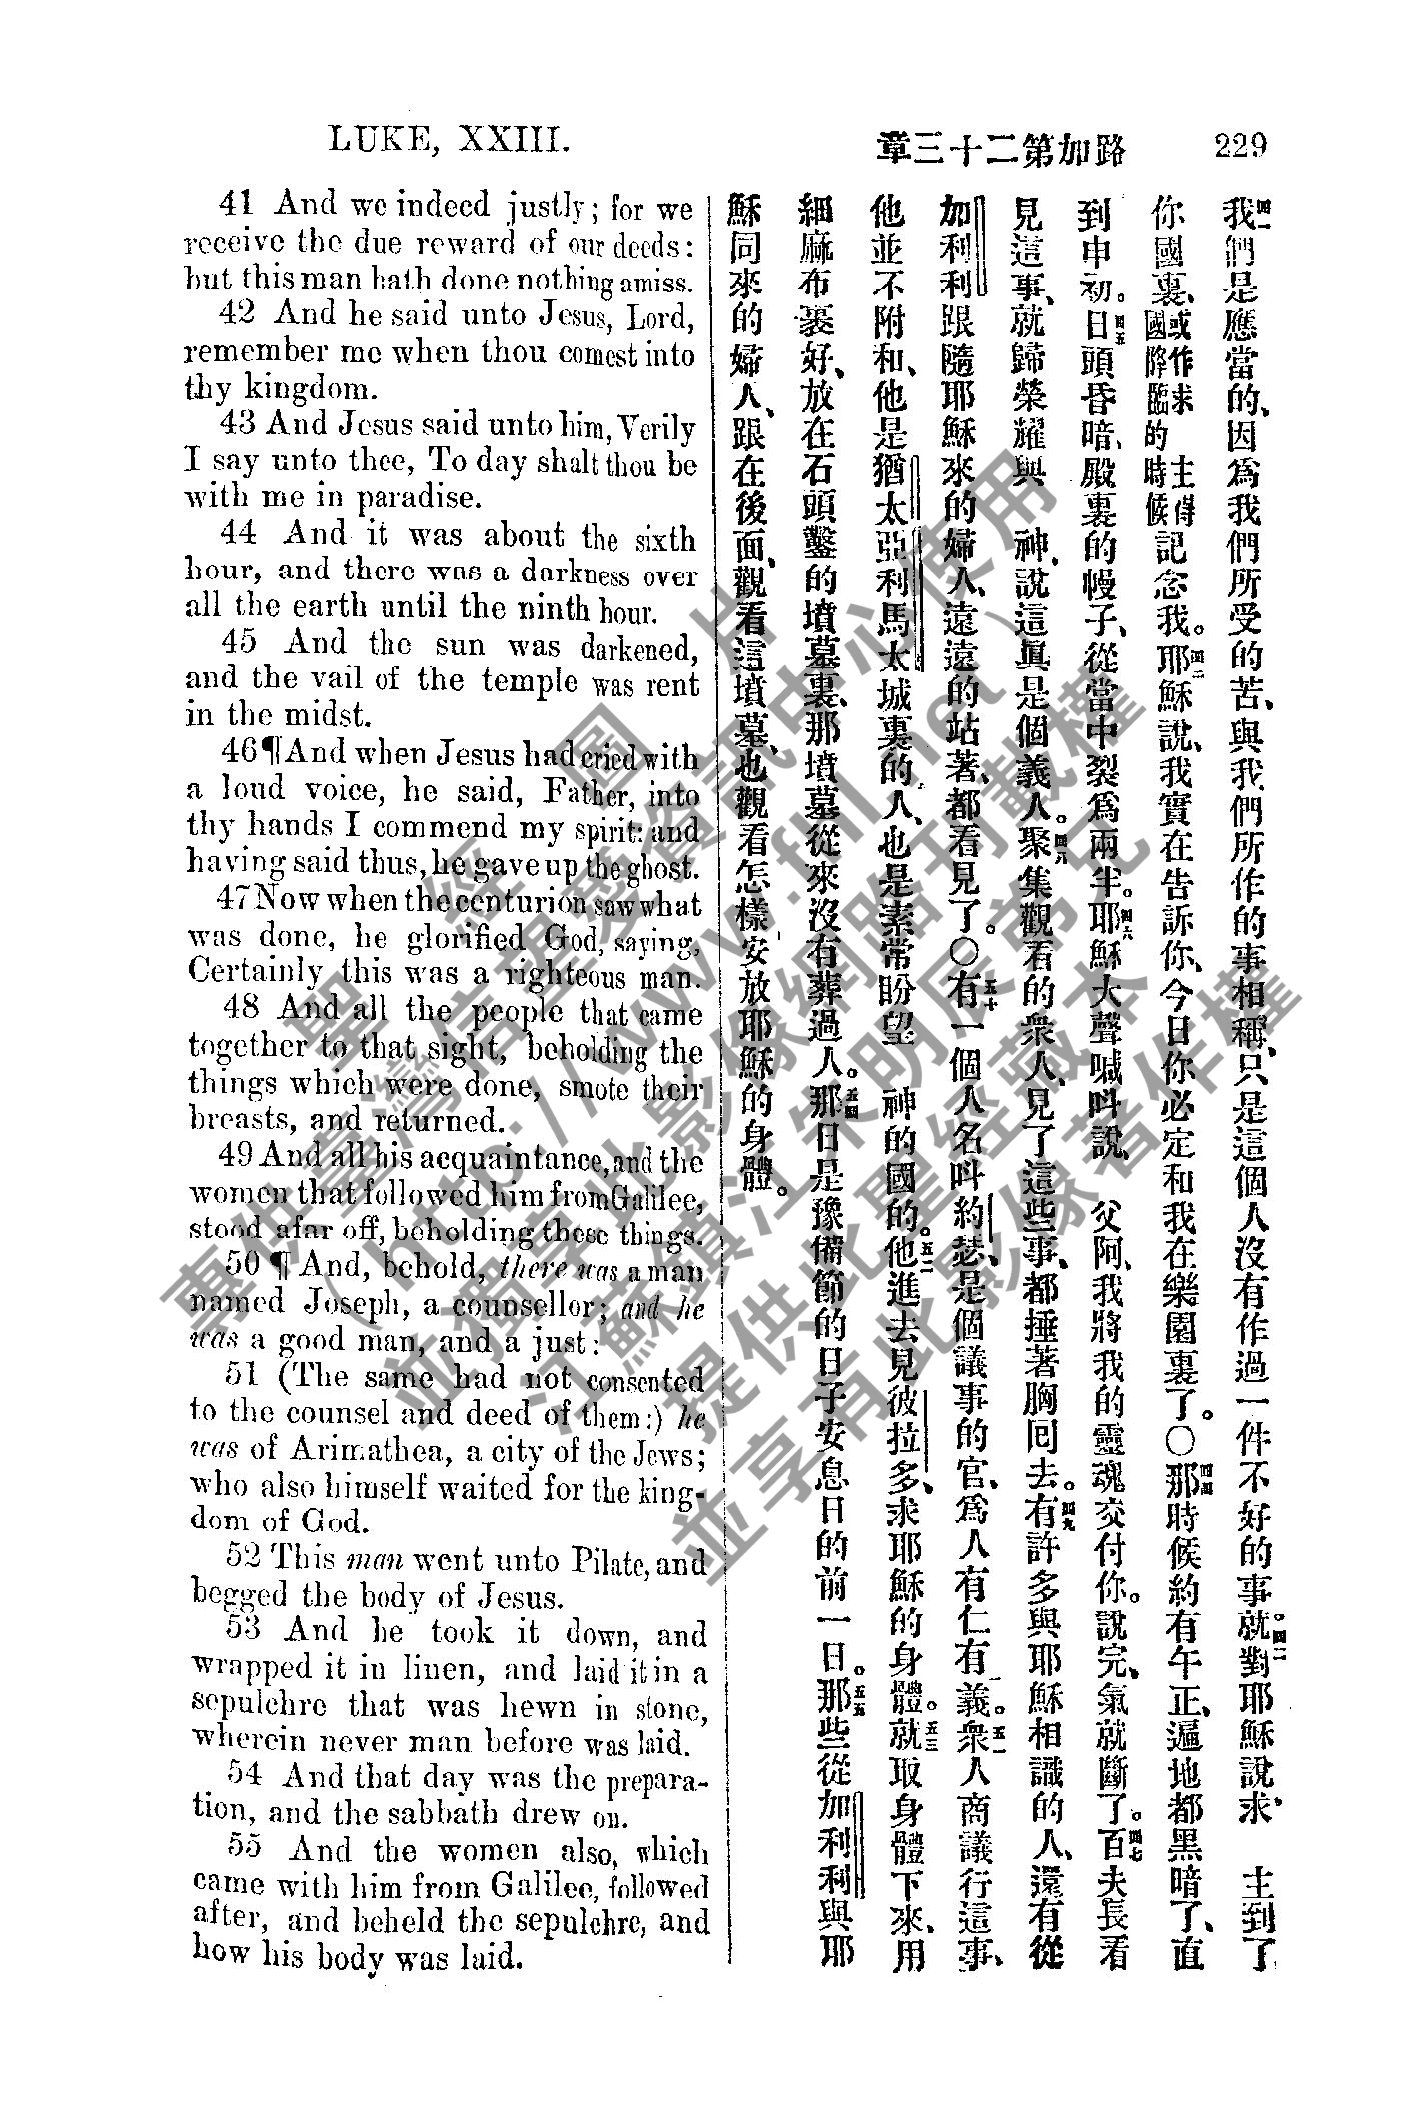 LUKE, XXIII.
章三十二第加路
229
41 And we indeed justly; for we
receive the due reward of our deeds:
but this man hath done nothing amiss.
42 And he said unto Jesus, Lord,
remember me when thou comest into
thy kingdom.
43 And Jesus said unto him, Verily
I say unto thee, To day shalt thou be
with me in paradise.
44 And it was about the sixth
hour, and there was a darkness over
all the earth until the ninth hour.
45 And the sun was darkened,
and the vail of the temple was rent
in the midst.
46 ¶ And when Jesus had cried with
a loud voice, he said, Father, into
thy hands I commend my spirit: and
having said thus, he gave up the ghost.
47 Now when the centurion saw what
was done, he glorified God, saying,
Certainly this was a righteous man.
48 And all the people that came
together to that sight, beholding the
things which were done, smote their
breasts, and returned.
49 And all his acquaintance, and the
women that followed him from Galilee,
stood afar off, beholding these things.
50 ¶ And, behold, there was a man
named Joseph, a counsellor; and he
was a good man, and a just:
51 (The same had not consented
to the counsel and deed of them:) he
was of Arimathea, a city of the Jews;
who also himself waited for the king-
dom of God.
52 This man went unto Pilate, and
begged the body of Jesus.
53 And he took it down, and
wrapped it in linen, and laid it in a
sepulchre that was hewn in stone,
wherein never man before was laid.
54 And that day was the prepara-
tion, and the sabbath drew on.
55 And the women also, which
came with him from Galilee, followed
after, and beheld the sepulchre, and
how his body was laid.
四一我們是應當的、因爲我們所受的苦、與我們所作的事相稱、只是這個人沒有作過一件不好的事。四二就對耶穌說、求 主到了
你國裏、或作求國降臨的時候 主得記念我。四三耶穌說、我實在告訴你、今日你必定和我在樂園裏了。〇四四那時候約有午正、遍地都黑暗了、直
到申初。四五日頭昏暗、殿裏的幔子、從當中裂爲兩半。四六耶穌大聲喊叫說、 父阿、我將我的靈魂交付你。說完、氣就斷了。四七百夫長看
見這事、就歸榮耀與 神、說這眞是個義人。四八聚集觀看的衆人、見了這些事、都捶著胸囘去。四九有許多與耶穌相識的人、還有從
加利利跟隨耶穌來的婦人、遠遠的站著、都看見了。〇五十有一個人名叫約瑟、是個議事的官、爲人有仁有義。五一衆人商議行這事、
他並不附和、他是猶太亞利馬太城裏的人、也是素常盼望 神的國的。五二他進去見彼拉多、求耶穌的身體。五三就取身體下來、用
細麻布裹好、放在石頭鑿的墳墓裏、那墳墓從來沒有葬過人。五四那日是豫備節的日子安息日的前一日。五五那些從加利利與耶
穌同來的婦人、跟在後面、觀看這墳墓、也觀看怎樣安放耶穌的身體。
聖經圖片
專供臺灣信望愛資訊中心使用
( http://www.fhl.net )
並獲享此影像網路刊載權
江蘇鎮江朱明辰弟兄
提供此聖經藏本
並享有此影像著作權